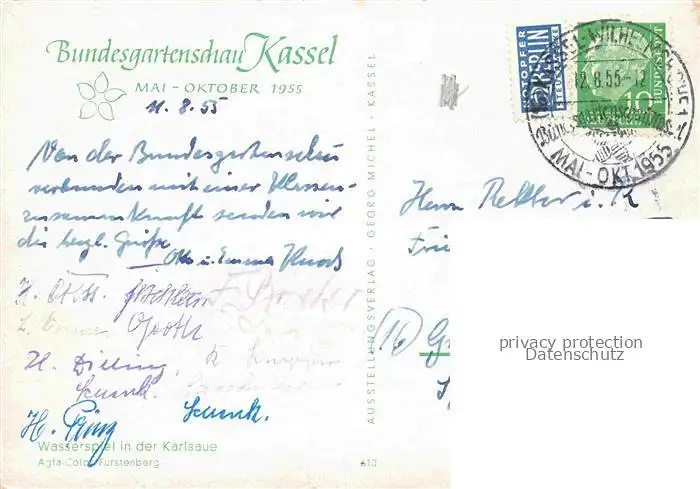 Bundesgartenschau Kassel
MAI - OKTOBER 1955
11.8.55
Von der Bundesgartenschau
verbunden mit einer Klassen-
zusammenkunft senden wir
die herzl. Grüße
Otto u. Emma
H.
Groth
H. Dilling
H. Prinz
Wasserspiel in der Karlsaue
Agfa-Color Fürstenberg
610
AUSSTELLUNGSVERLAG · GEORG MICHEL · KASSEL
NOTOPFER
2 BERLIN
STEUERMARKE
10
DEUTSCHE BUNDESPOST
KASSEL-WILHELMSHÖHE 1
12.8.55-12
Bundesgartenschau
MAI-OKT. 1955
Herrn Rektor i. R.
Frie
(16) G
privacy protection
Datenschutz